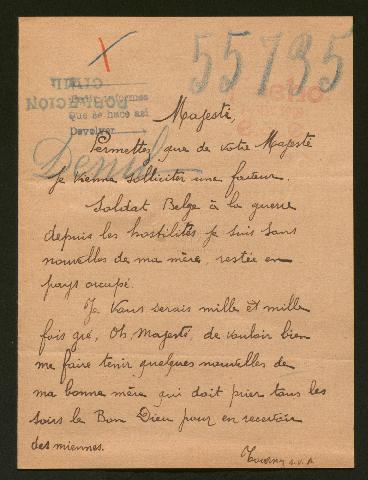 55735
POBLACION
CIVIL
Que se hace asi
Devolver
Majesté,
Permettez que de votre Majesté
je vienne solliciter une faveur.
Soldat Belge à la guerre
depuis les hostilités je suis sans
nouvelles de ma mère, restée en
pays occupé.
Je Vous serais mille et mille
fois gré, Oh, Majesté, de vouloir bien
me faire tenir quelques nouvelles de
ma bonne mère qui doit prier tous les
soirs le Bon Dieu pour en recevoir
des miennes.